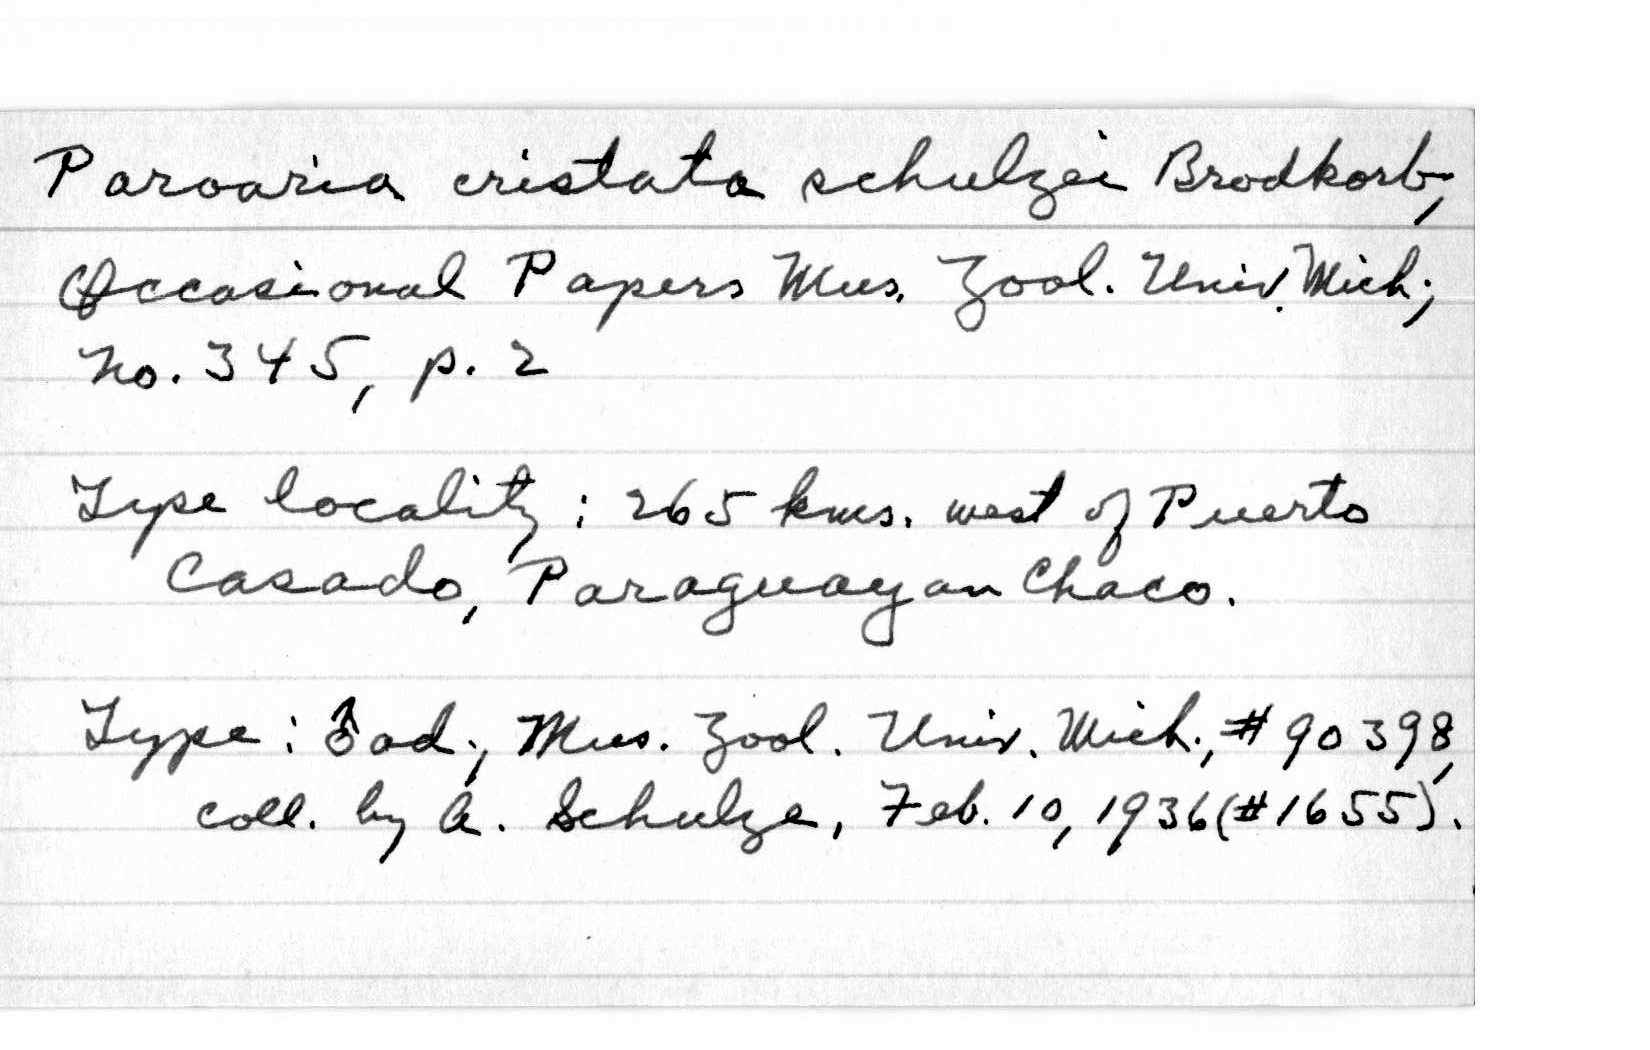 Paroaria cristata schulzei Brodkorb,
Occasional Papers Mus. Zool. Univ. Mich.,
No. 345, p. 2
Type locality: 265 kms. west of Puerto
Casado, Paraguayan Chaco.
Type: ♂ ad., Mus. Zool. Univ. Mich., #90398,
coll. by A. Schulze, Feb. 10, 1936 (#1655).